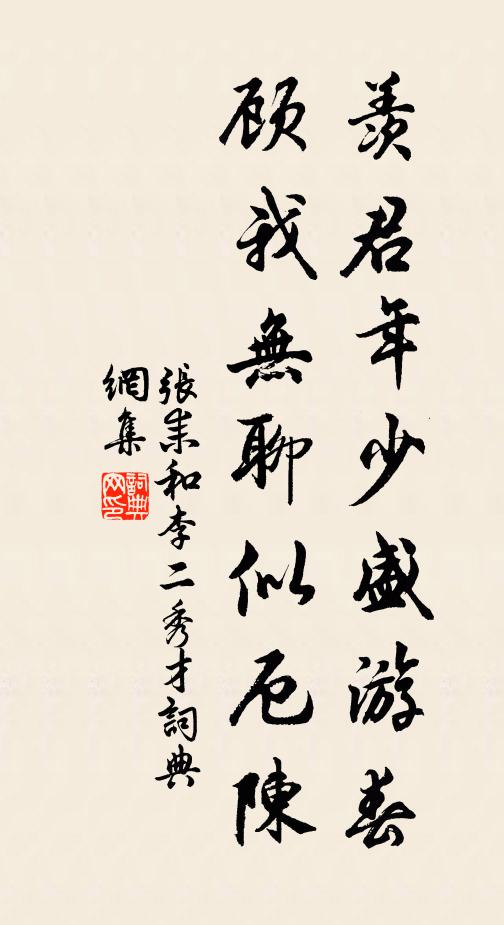 羨君年少盛游春
顧我無聊似厄陳
張耒和李二秀才詞典
網集
詞典
网印